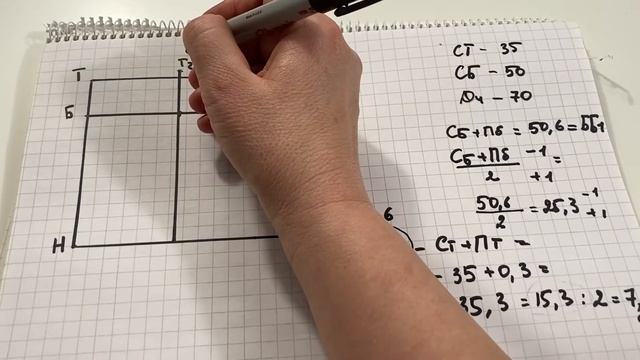 Т
Т2
Б
Н
СТ - 35
СБ - 50
Ди - 70
СБ + Пб = 50,6 = ББ1
СБ + Пб -1
2 +1 =
50,6 = 25,3 -1
2 +1
6
- СТ + ПТ =
- 35 + 0,3 =
35,3 = 15,3 : 2 = 7,